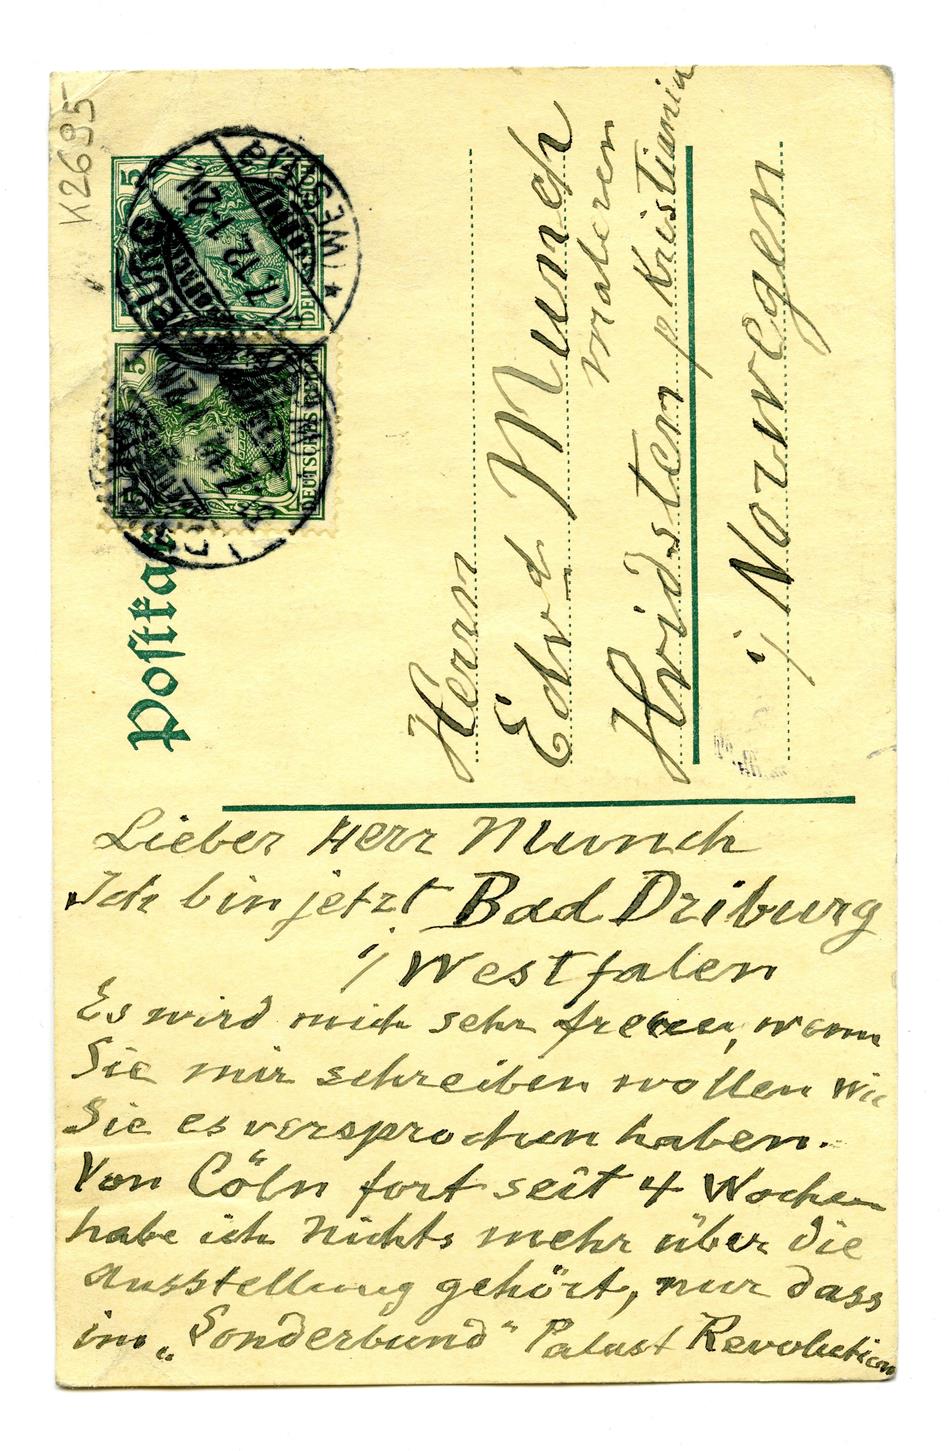 K2695
5
5
DEUTSCHES REICH
7.12. 1-2N.
(WESTF)
Postka
Herrn
Edvd Munch
Maleren
Hvidsten p Kristiania
i/ Norwegen
Lieber Herr Munch
Ich bin jetzt Bad Driburg
i/ Westfalen
Es wird mich sehr freuen, wenn
Sie mir schreiben wollen wie
Sie es versprochen haben.
Von Cöln fort seit 4 Wochen
habe ich Nichts mehr über die
Ausstellung gehört, nur dass
im „Sonderbund" Palast Revolution